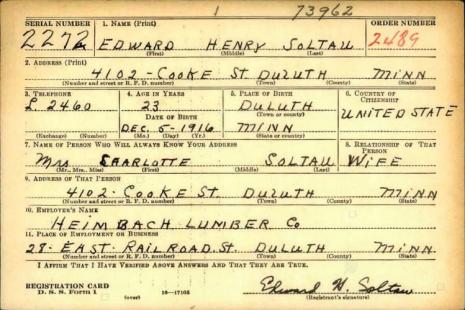 1 73962
SERIAL NUMBER 1. NAME (Print) ORDER NUMBER
2272 EDWARD HENRY SOLTAU 2489
(First) (Middle) (Last)
2. ADDRESS (Print)
4102 - COOKE ST. DULUTH MINN
(Number and street or R. F. D. number) (Town) (County) (State)
3. TELEPHONE 4. AGE IN YEARS 5. PLACE OF BIRTH 6. COUNTRY OF CITIZENSHIP
L. 2460 23 DULUTH UNITED STATE
DATE OF BIRTH (Town or county)
DEC. 5-1916 MINN
(Exchange) (Number) (Mo.) (Day) (Yr.) (State or country)
7. NAME OF PERSON WHO WILL ALWAYS KNOW YOUR ADDRESS 8. RELATIONSHIP OF THAT PERSON
Mrs CHARLOTTE SOLTAU WIFE
(Mr., Mrs., Miss) (First) (Middle) (Last)
9. ADDRESS OF THAT PERSON
4102 - COOKE ST. DULUTH MINN
(Number and street or R. F. D. number) (Town) (County) (State)
10. EMPLOYER'S NAME
HEIMBACH LUMBER Co
11. PLACE OF EMPLOYMENT OR BUSINESS
28 - EAST - RAILROAD. St. DULUTH MINN
(Number and street or R. F. D. number) (Town) (County) (State)
I AFFIRM THAT I HAVE VERIFIED ABOVE ANSWERS AND THAT THEY ARE TRUE.
REGISTRATION CARD
D. S. S. Form 1 (over) 16-17105 Edward H. Soltau
(Registrant's signature)